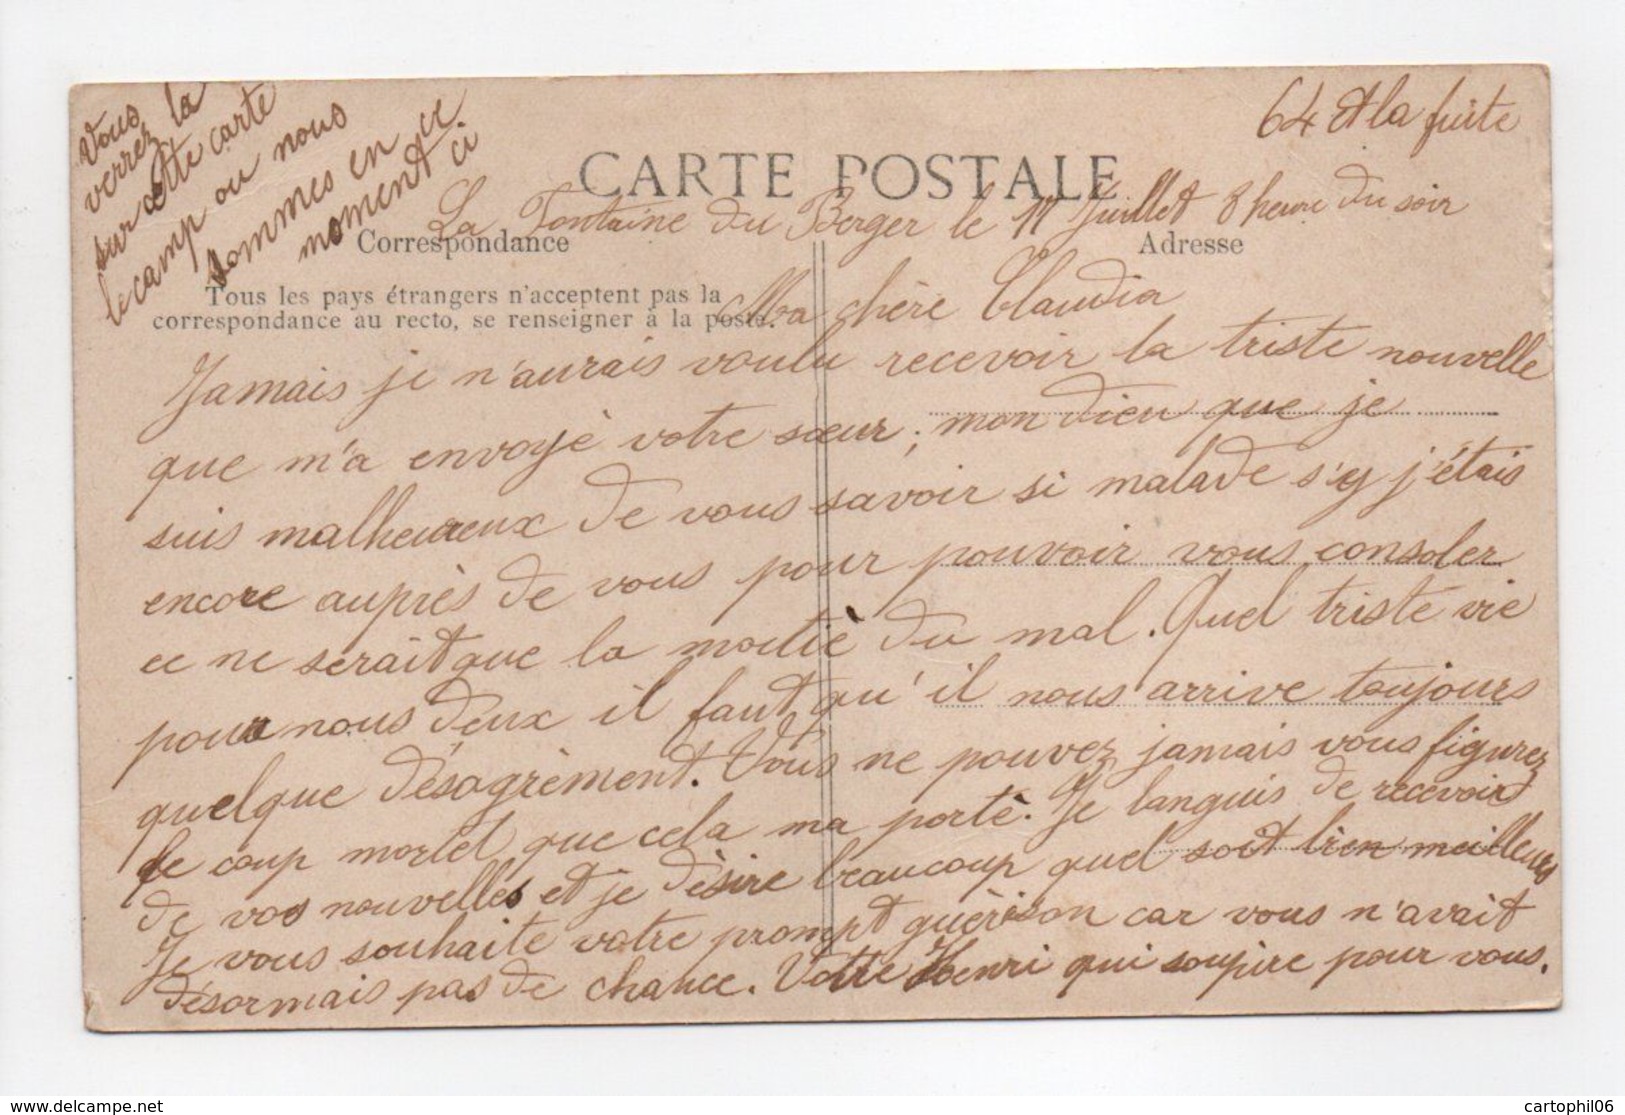 Vous
verrez la
sur cette carte
le camp ou nous
sommes en ce
moment ci
64 et la fuite
CARTE POSTALE
La Fontaine du Berger le 17 Juillet 8 heure du soir
Correspondance
Adresse
Tous les pays étrangers n'acceptent pas la
correspondance au recto, se renseigner à la poste.
Ma chère Claudia
Jamais je n'aurais voulu recevoir la triste nouvelle
que m'a envoyé votre sœur; mon dieu que je
suis malheureux de vous savoir si malade s'y j'étais
encore auprès de vous pour pouvoir vous consoler
ce ne serait que la moitiè du mal. Quel triste vie
pour nous deux il faut qu'il nous arrive toujours
quelque désagrèment. Vous ne pouvez jamais vous figurez
le coup mortel que cela ma portè. Je languis de recevoir
de vos nouvelles et je dèsire beaucoup quel soit bien meilleures
Je vous souhaite votre prompt guèrison car vous n'avait
désormais pas de chance. Votre Henri qui soupire pour vous.
www.delcampe.net
cartophil06